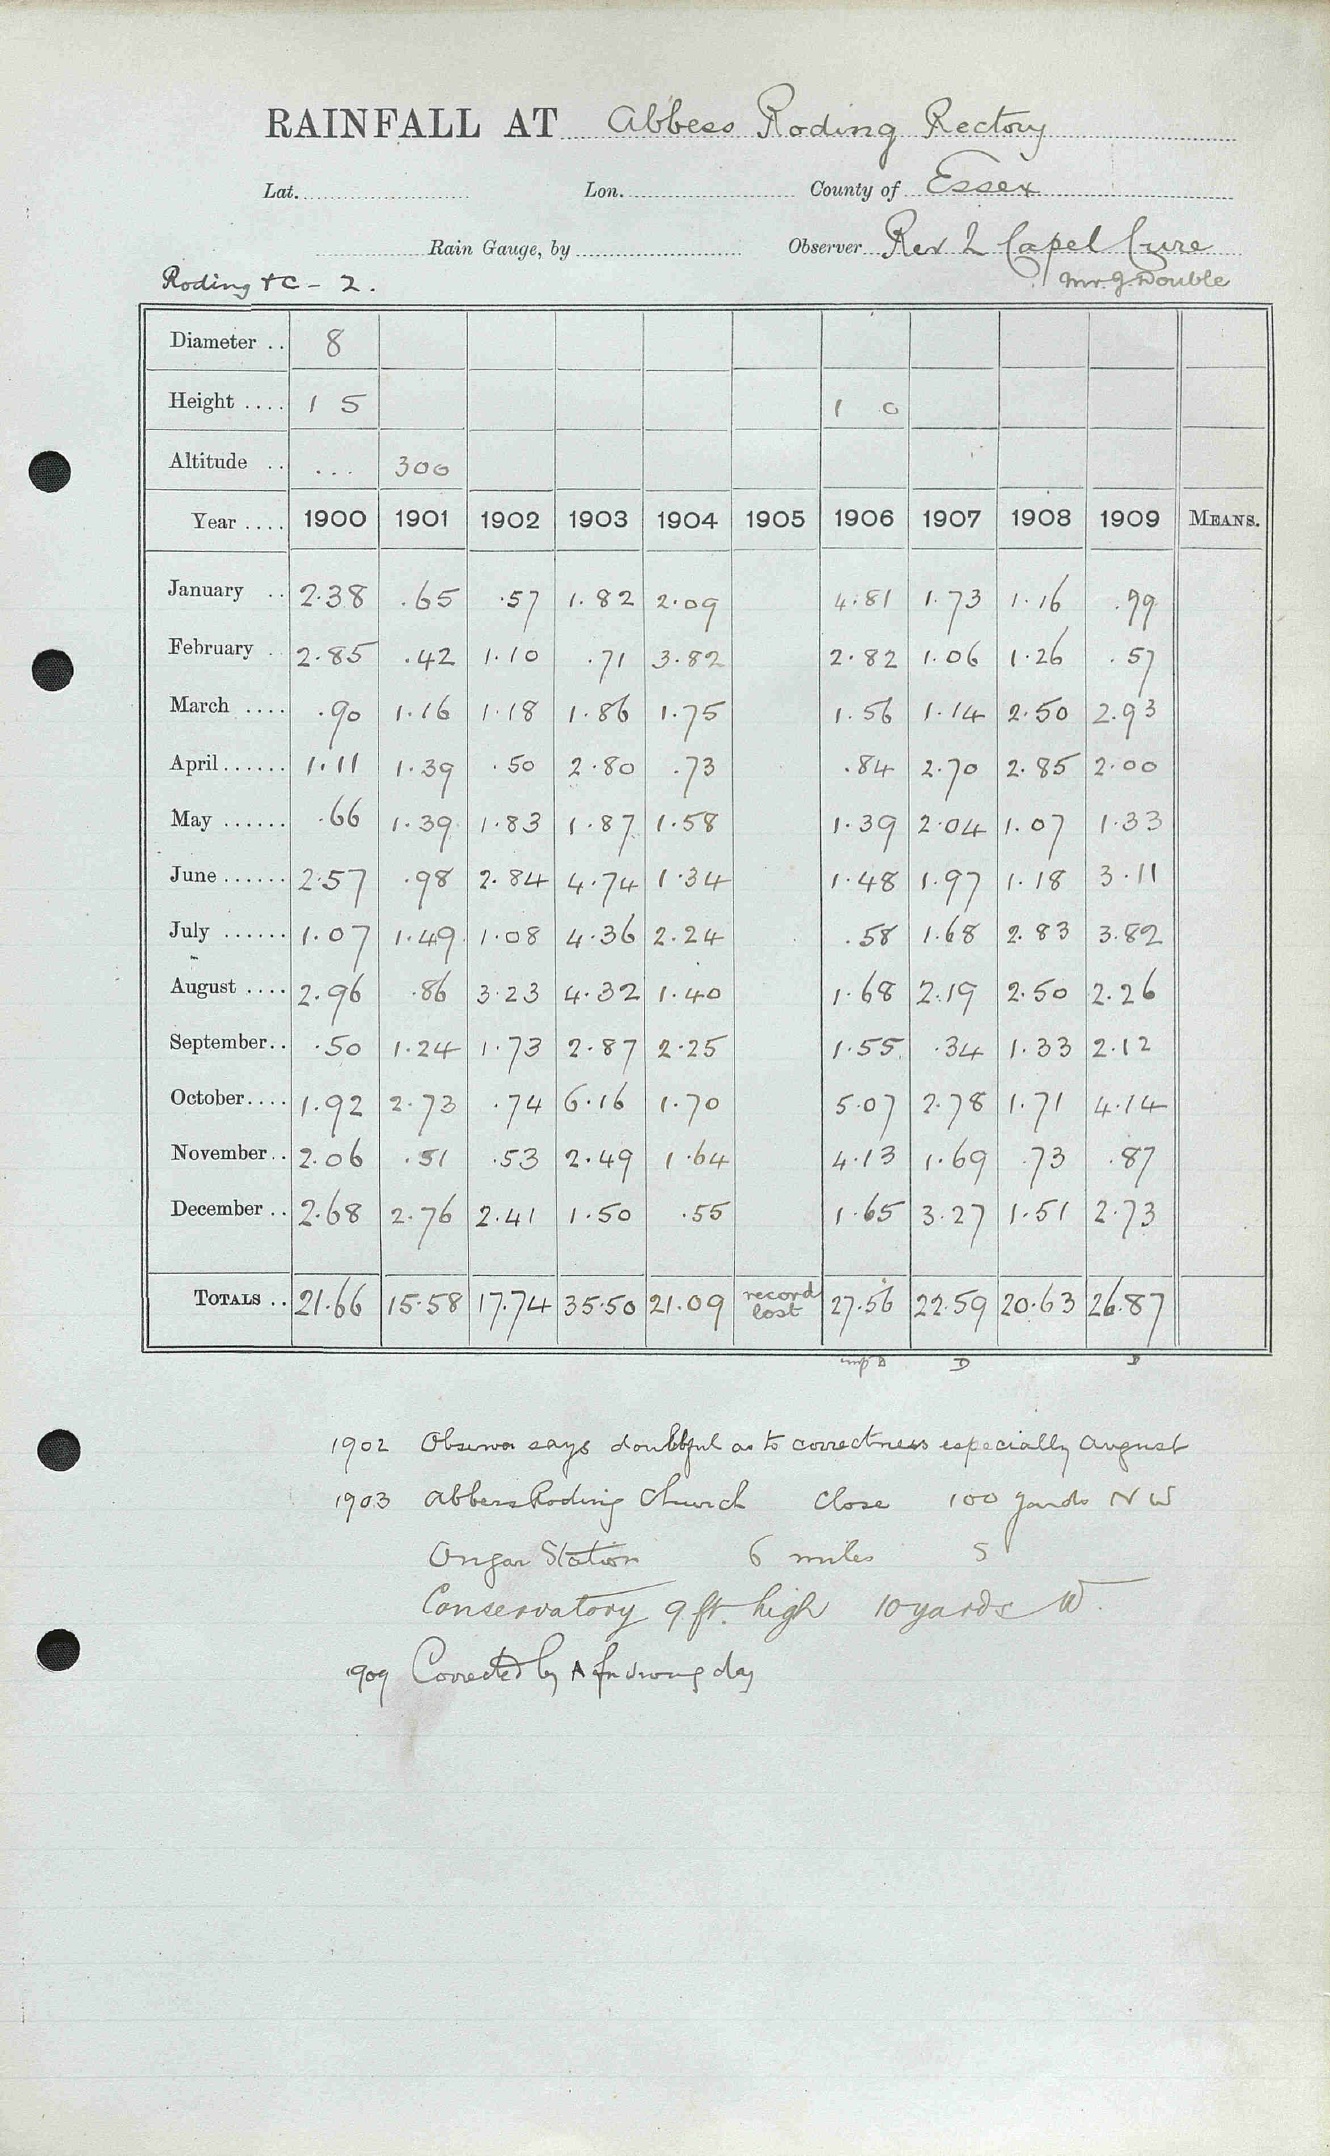 RAINFALL AT Abbess Roding Rectory
Lat. Lon. County of Essex
Rain Gauge, by Observer Rev L Capel Cure
Roding & C - 2. Mr. J. Double
Diameter .. 8
Height .... 1 5 1 0
Altitude .. ... 300
Year .... 1900 1901 1902 1903 1904 1905 1906 1907 1908 1909 MEANS.
January .. 2.38 .65 .57 1.82 2.09 4.81 1.73 1.16 .99
February . 2.85 .42 1.10 .71 3.82 2.82 1.06 1.26 .57
March .... .90 1.16 1.18 1.86 1.75 1.56 1.14 2.50 2.93
April...... 1.11 1.39 .50 2.80 .73 .84 2.70 2.85 2.00
May ...... .66 1.39 1.83 1.87 1.58 1.39 2.04 1.07 1.33
June ...... 2.57 .98 2.84 4.74 1.34 1.48 1.97 1.18 3.11
July ...... 1.07 1.49 1.08 4.36 2.24 .58 1.68 2.83 3.82
August .... 2.96 .86 3.23 4.32 1.40 1.68 2.19 2.50 2.26
September.. .50 1.24 1.73 2.87 2.25 1.55 .34 1.33 2.12
October.... 1.92 2.73 .74 6.16 1.70 5.07 2.78 1.71 4.14
November.. 2.06 .51 .53 2.49 1.64 4.13 1.69 .73 .87
December .. 2.68 2.76 2.41 1.50 .55 1.65 3.27 1.51 2.73
TOTALS .. 21.66 15.58 17.74 35.50 21.09 record lost 27.56 22.59 20.63 26.87
D D
1902 Observer says doubtful as to correctness especially August
1903 Abbess Roding Church Close 100 yards N W
Ongar Station 6 miles S
Conservatory 9 ft. high 10 yards W.
1909 Corrected by A for wrong day